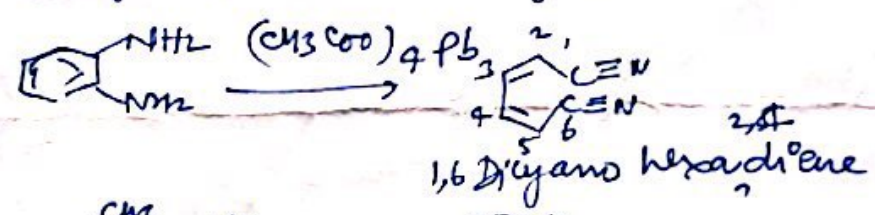 NH2
NH2
(CH3COO)4Pb
1
2
3
4
5
6
C≡N
C≡N
1,6 Dicyano hexadiene
CH3